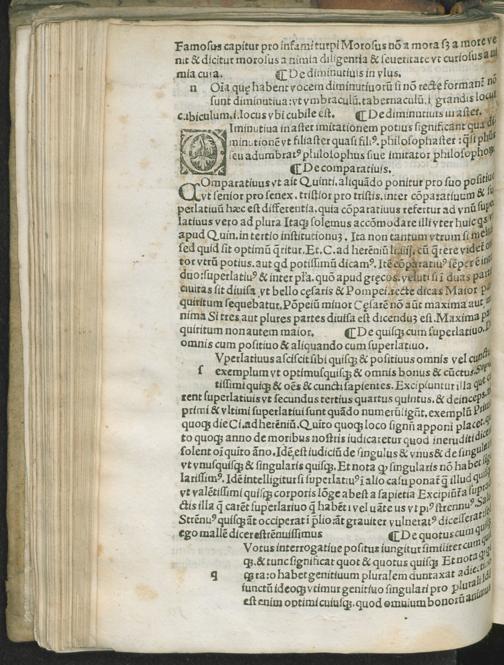 Famosus capitur pro infami turpi Morosus nõ a mora sȝ a more ve
nit & dicitur morosus a nimia diligentia & seueritate vt curiosus a ni
mia cura. ¶ De diminutiuis in ylus.
n Oĩa quę habent vocem diminutiuorũ si nõ recte formant nõ
sunt diminutiua: vt vmbraculũ, tabernaculũ. i. grandis locus
cubiculum. i. locus vbi cubile est. ¶ De diminutiuis in aster.
Diminutiua in aster imitationem potius significant qua di
minutionẽ vt filiaster quasi filiꝰ. philosophaster: qͣsi phi
seu adumbratꝰ philosophus siue imitator philosophoꝝ
¶ De comparatiuis.
COmparatiuus vt ait Quinti. aliquãdo ponitur pro suo positiuo
vt senior pro senex. tristior pro tristis. inter cõparatiuum & su
perlatiuũ hæc est differentia. quia cõparatiuus refertur ad vnũ super
latiuus vero ad plura Itaqꝫ solemus accõmodare illi vter huic qͥs vt
apud Quin. in tertio institutionuȝ. Ita non tantum vtrum si melius
sed quid sit optimũ q̃ritur. Et. C. ad herẽniũ cũ q̃rere videt
tor vtrũ potius. aut qd potissimũ dicamꝰ. Itẽ cõparatiuꝰ sẽper ẽ inter
duo: superlatiuꝰ & inter pl'a. quõ apud grecos. veluti si ĩ duas partes
ciuitas sit diuisa vt bello cęsaris & Pompei. recte dicas Maior pars
quiritum sequebatur. Põpeiũ minor Cesarẽ nõ aũt maxima aut mi
nima Si tres aut plures partes diuisa est dicenduȝ est. Maxima pars
quiritum non autem maior. ¶ De quisqꝫ cum superlatiuo.
omnis cum positiuo & aliquando cum superlatiuo.
Vperlatiuus asciscit sibi quisqꝫ & positiuus omnis vel cuncti
s exemplum vt optimusquisqꝫ & omnis bonus & cũctus. Sapien
tissimi quiqꝫ & oẽs & cuncti sapientes. Excipiuntur illa que
rent superlatiuis vt secundus tertius quartus quintus. & deinceps.
primi & vltimi superlatiui sunt quãdo numerũ signt. exemplũ Primo
quoqꝫ die Ci. ad herẽniũ. Quito quoqꝫ loco signũ apponi placet.
to quoqꝫ anno de moribus nostris iudicaretur quod ineruditi dicere
solent oĩ quĩto ãno. Idẽ est iudiciũ de singulus & vnus & de singularis
vt vnusquisqꝫ & singularis quisqꝫ. Et nota qp singularis nõ habet sigu
larissimꝰ. Idẽ intelligitur si superlatiuꝰ ĩ alio casu ponat q̃ illud quisqꝫ
vt valẽtissimi quisqꝫ corporis lõge abest a sapiẽtia Excipiũt̃a supradi
ctis illa q̃ carẽt superlatiuo q̃ habẽt i vel u ãte us vt pꝰ strennuꝰ.
Strẽnuꝰ quisqꝫ ãt occiperat ĩ p̃lio ãt grauiter vulneratꝰ discesserat
ego mallẽ dicere strẽnuissimus ¶ De quotus cum quisqꝫ
Votus interrogatiue positus iungitur similiter cum quis
qꝫ. & tunc significat quot & quotus quisqꝫ Et nota qp
q quoto habet genitiuum pluralem duntaxat adie
iunctũ ideoqꝫ vtimur genitiuo singulari pro plurali
est enim optimi cuiusqꝫ. quod omnium bonorũ animus